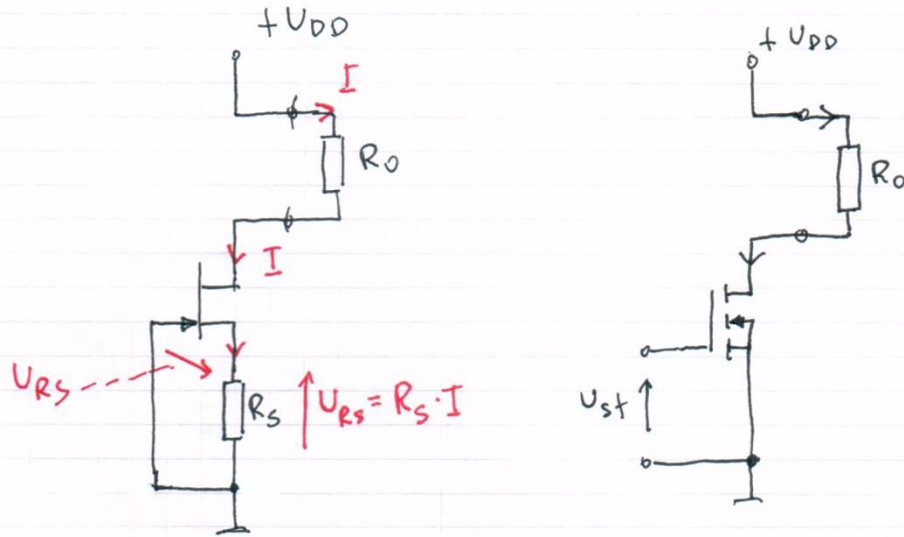 +UDD
I
RO
I
URS
RS
URS = RS · I
+UDD
RO
Ust